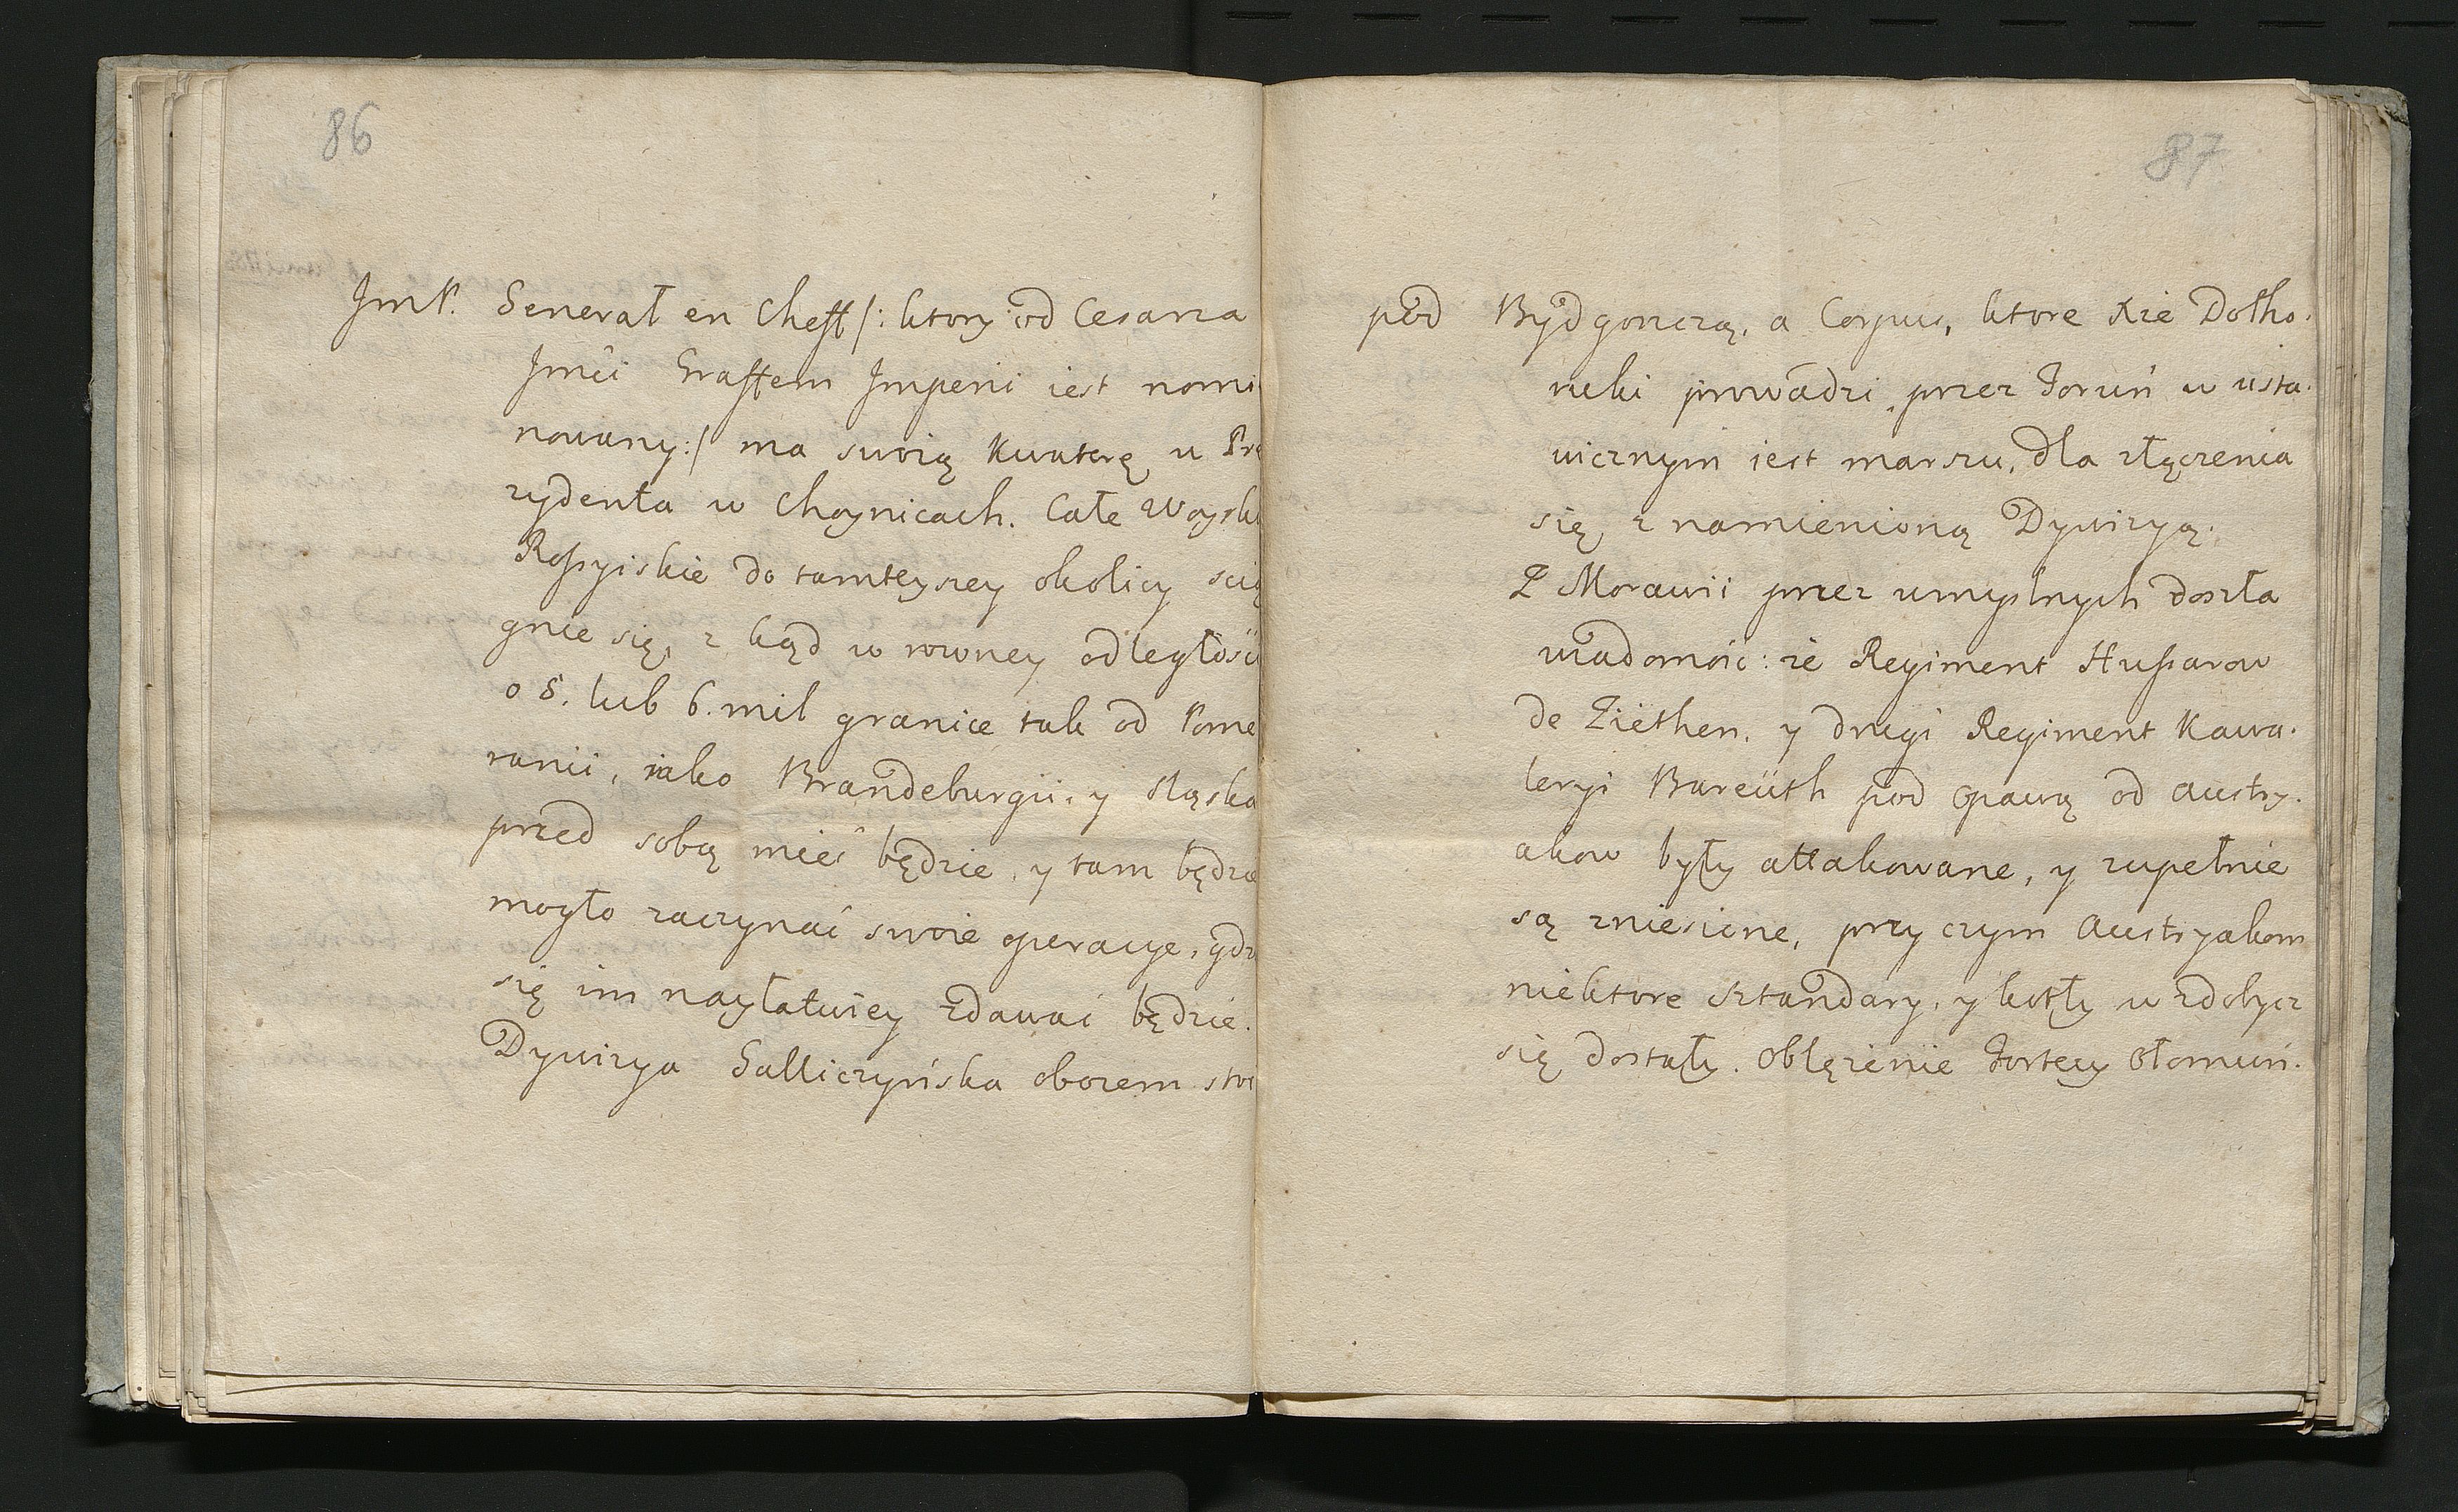 86
JmP. Generał en Cheff /: ktory od Cesarza
Jmći Graffem Jmperii iest nomi
nowany :/ ma swoią Kwaterę u Pre
zydenta w Choynicach. Całe Woysko
Rossyiskie do tamteyszey okolicy scią
gnie się, z kąd w rowney odległośći
o 5. lub 6. mil granice tak od Pome
ranii, iako Brandeburgii, y Sląska
przed sobą mieć będzie, y tam będzie
mogło zaczynać swoie operacye, gdzie
się im nayłatwiey zdawać będzie.
Dywizya Galliczyńska obozem stoi
87
pod Bydgoszczą, a Corpus, ktore Xże Dołho.
ruki prowadzi, przez Toruń w usta.
wicznym iest marszu, dla złączenia
się z namienioną Dywizyą.
Z Morawii przez umyslnych doszła
wiadomość: że Regiment Hussarow
de Ziethen, y drugi Regiment Kawa.
leryi Bareüth pod Opawą od Austry.
akow były attakowane, y zupełnie
są zniesione, przy czym Austryakom
niektore sztandary, y kotły w zdobycz
się dostały. Oblężenie Fortecy Ołomuń.